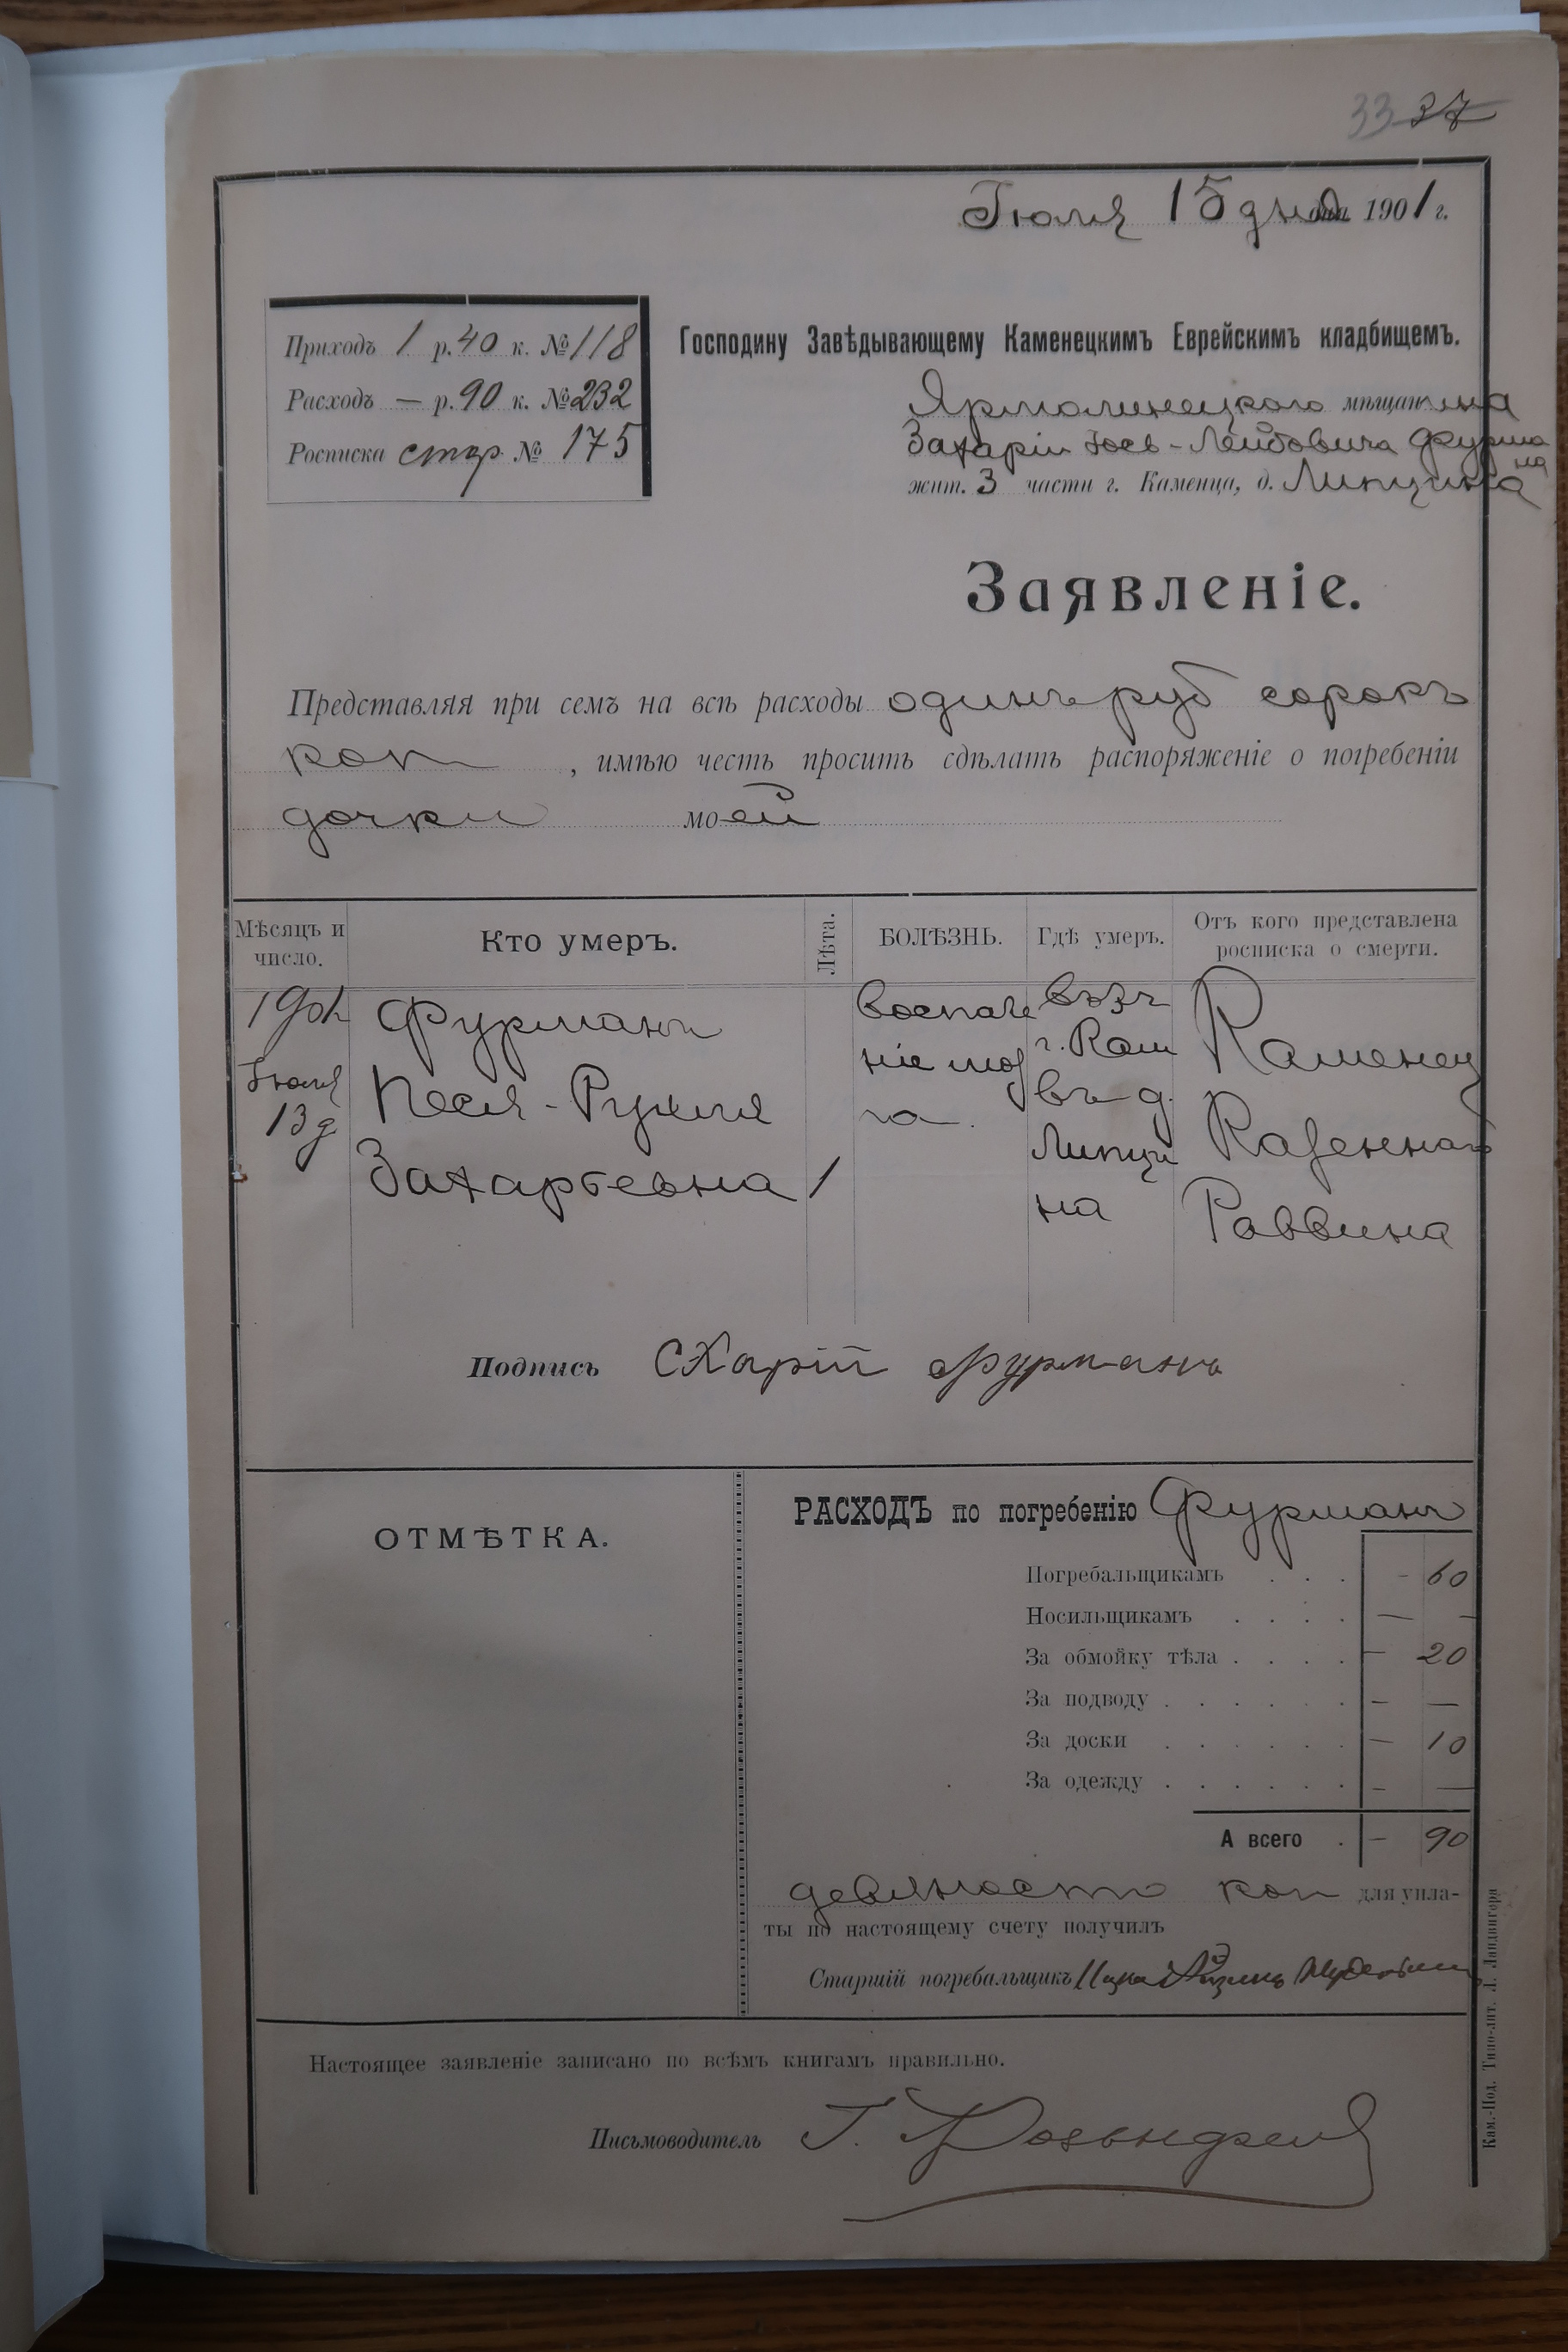 33 37
Іюля 15 дня 1901 г.
Приходъ 1 р. 40 к. № 118
Расходъ — р. 90 к. № 232
Росписка стар № 175
Господину Завѣдывающему Каменецкимъ Еврейскимъ кладбищемъ.
Ярмолинецкого мѣщанина
Захарiи Іосъ-Лейбовича Фурма
на
жит. 3 части г. Каменца, д. Липцина
Заявленіе.
Представляя при семъ на всѣ расходы одинъ руб сорокъ
коп , имѣю честь просить сдѣлать распоряженіе о погребеніи
дочки моей
Мѣсяцъ и число.
Кто умеръ.
Лѣта.
БОЛѢЗНЬ.
Гдѣ умеръ.
Отъ кого представлена росписка о смерти.
Фурманъ воспале
Іюля ніе моз г. Кам Каменец
13 д Песя-Рухля га въ д. Казеннаго
Захарьевна 1 Липци
на Раввина
Подпись СХарій Фурманъ
ОТМѢТКА.
РАСХОДЪ по погребенію Фурманъ
Погребальщикамъ . . . - 60
Носильщикамъ . . . . — —
За обмойку тѣла . . . . — 20
За подводу . . . . . . – —
За доски . . . . . . — 10
За одежду . . . . . . – —
А всего . – 90
девяносто коп для упла-
ты по настоящему счету получилъ
Старшій погребальщикъ
Настоящее заявленіе записано по всѣмъ книгамъ правильно.
Письмоводитель Г.
Кам.-Под. Типо-лит. Л. Ландвигера